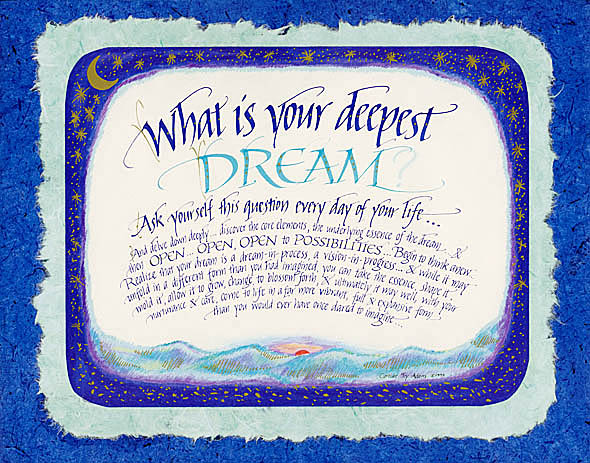 What is your deepest
DREAM?
Ask yourself this question every day of your life...
And delve down deeply... discover the core elements, the underlying essence of the dream... &
then OPEN... OPEN, OPEN to POSSIBILITIES... Begin to think anew...
Realize that your dream is a dream-in-process, a vision-in-progress... & while it may
unfold in a different form than you had imagined, you can take the essence, shape it,
mold it, allow it to grow, change to blossom forth, & ultimately it may well, with your
nurturance & care, come to life in a far more vibrant, full & expansive form
than you would ever have once dared to imagine...